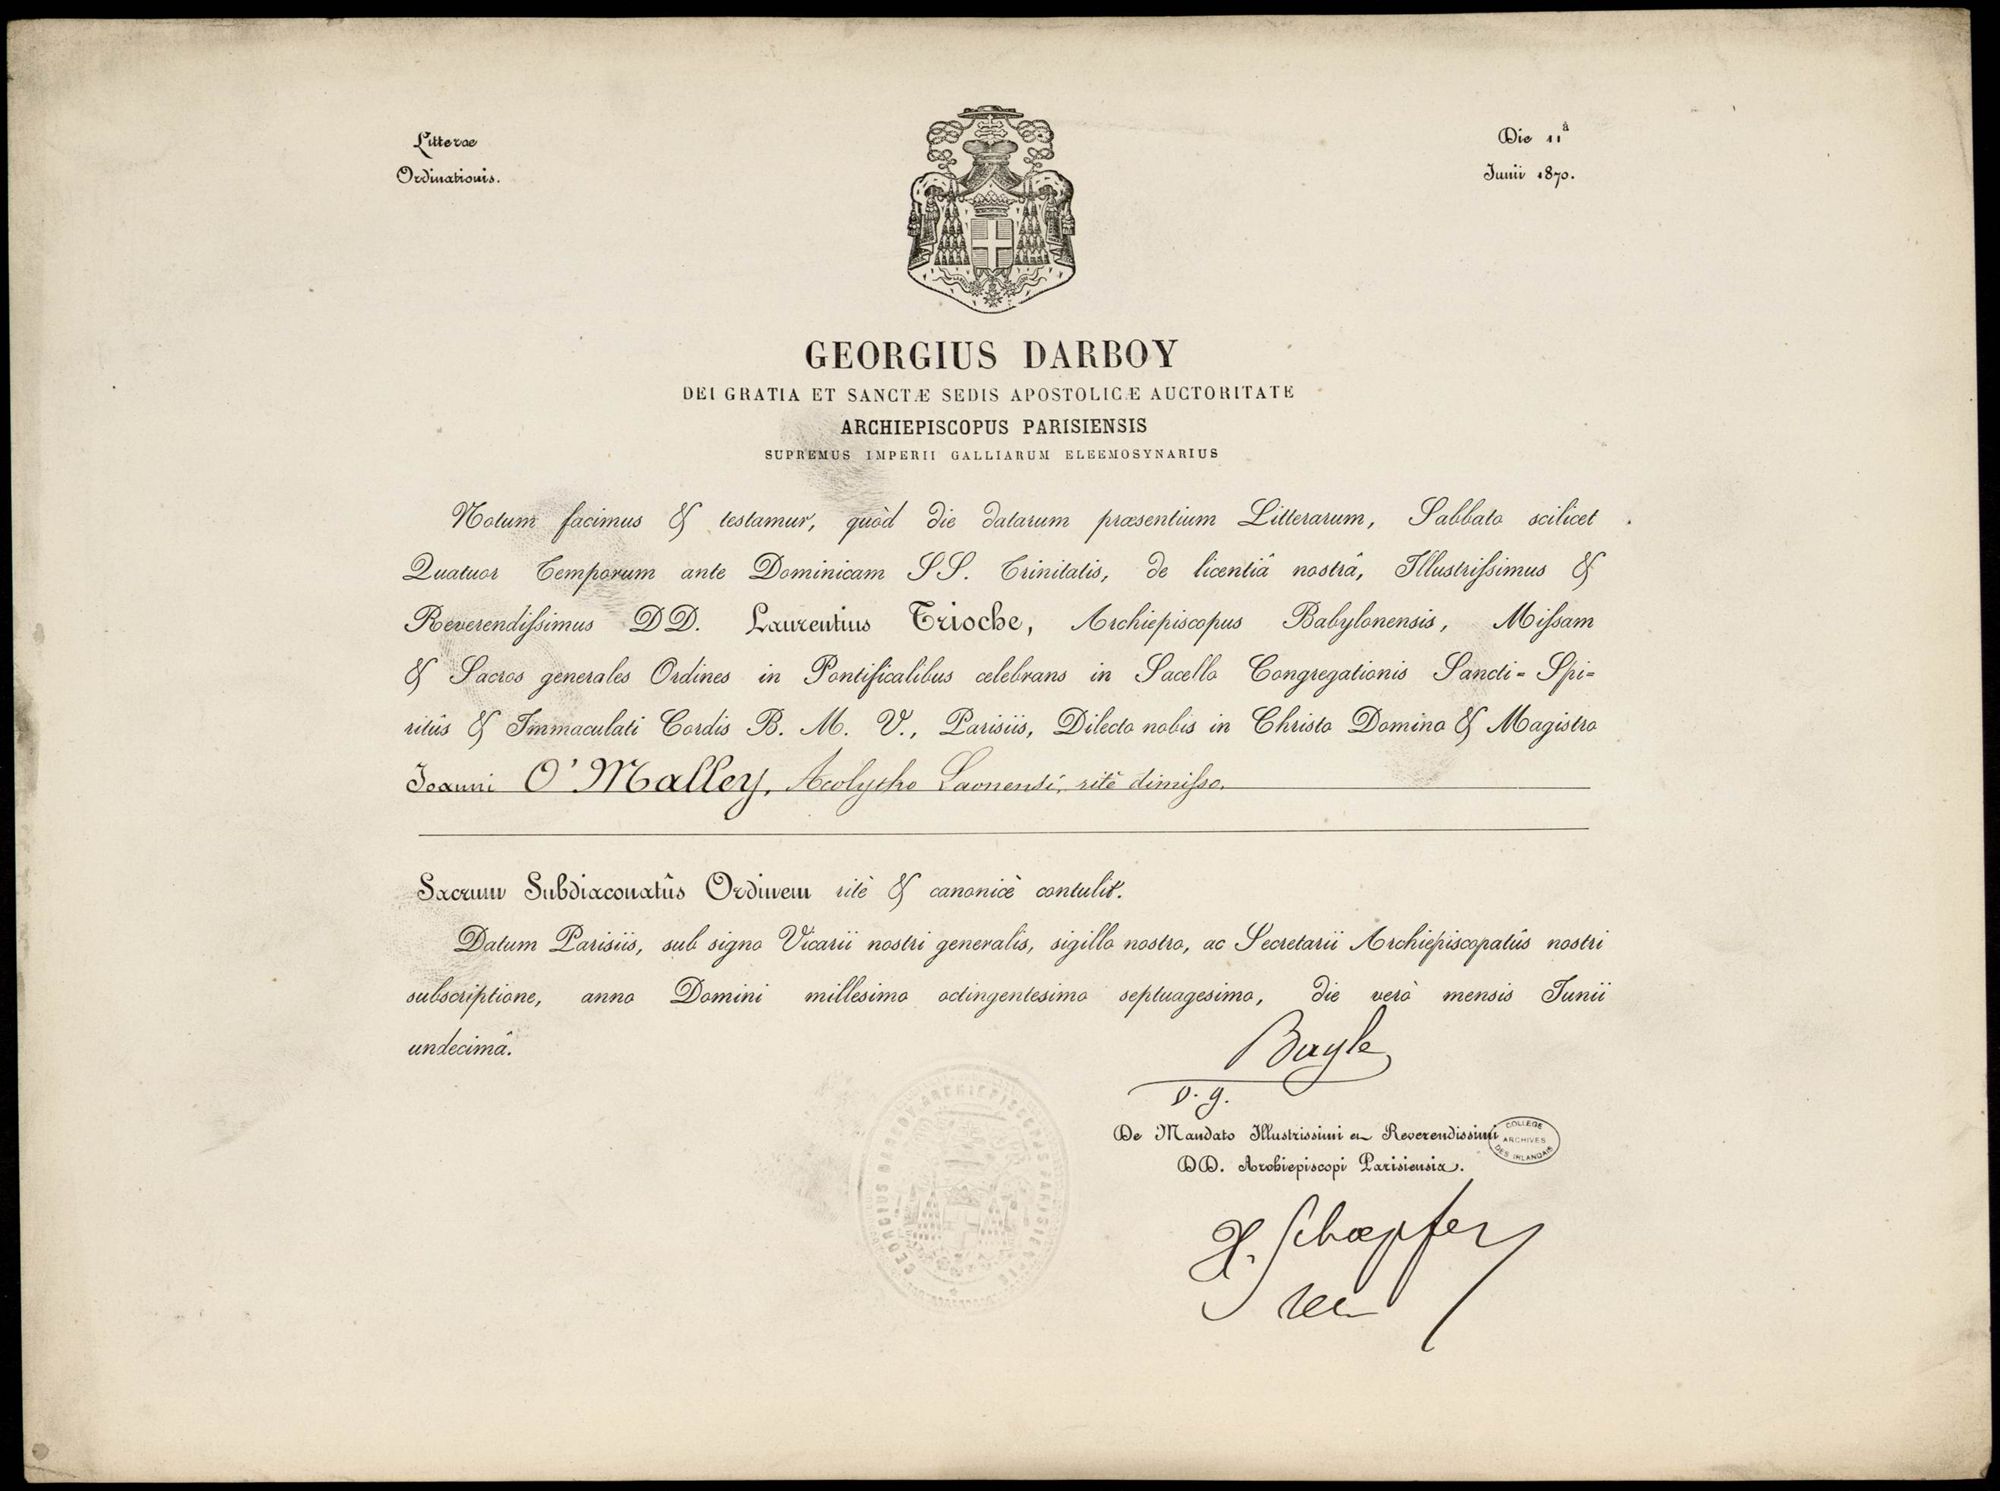 Litterae
Ordinationis.
Die 11ª
Junii 1870.
GEORGIUS DARBOY
DEI GRATIA ET SANCTÆ SEDIS APOSTOLICÆ AUCTORITATE
ARCHIEPISCOPUS PARISIENSIS
SUPREMUS IMPERII GALLIARUM ELEEMOSYNARIUS
Notum facimus & testamur, quòd die datarum præsentium Litterarum, Sabbato scilicet
Quatuor Temporum ante Dominicam SS. Trinitatis, de licentiâ nostrâ, Illustriſsimus &
Reverendiſsimus DD. Laurentius Trioche, Archiepiscopus Babylonensis, Miſsam
& Sacros generales Ordines in Pontificalibus celebrans in Sacello Congregationis Sancti=Spi=
ritûs & Immaculati Cordis B. M. V., Parisiis, Dilecto nobis in Christo Domino & Magistro
Joanni O'Malley, Acolytho Laonensi, ritè dimiſso.
Sacrum Subdiaconatûs Ordinem ritè & canonicè contulit.
Datum Parisiis, sub signo Vicarii nostri generalis, sigillo nostro, ac Secretarii Archiepiscopatûs nostri
subscriptione, anno Domini millesimo octingentesimo septuagesimo, die verò mensis Junii
undecimâ.
Bayle
v. g.
De Mandato Illustrissimi et Reverendissimi
DD. Archiepiscopi Parisiensis.
COLLEGE
ARCHIVES
DES IRLANDAIS
GEORGIUS DARBOY ARCHIEPISCOPUS PARISIENSIS
H. Schoepfer